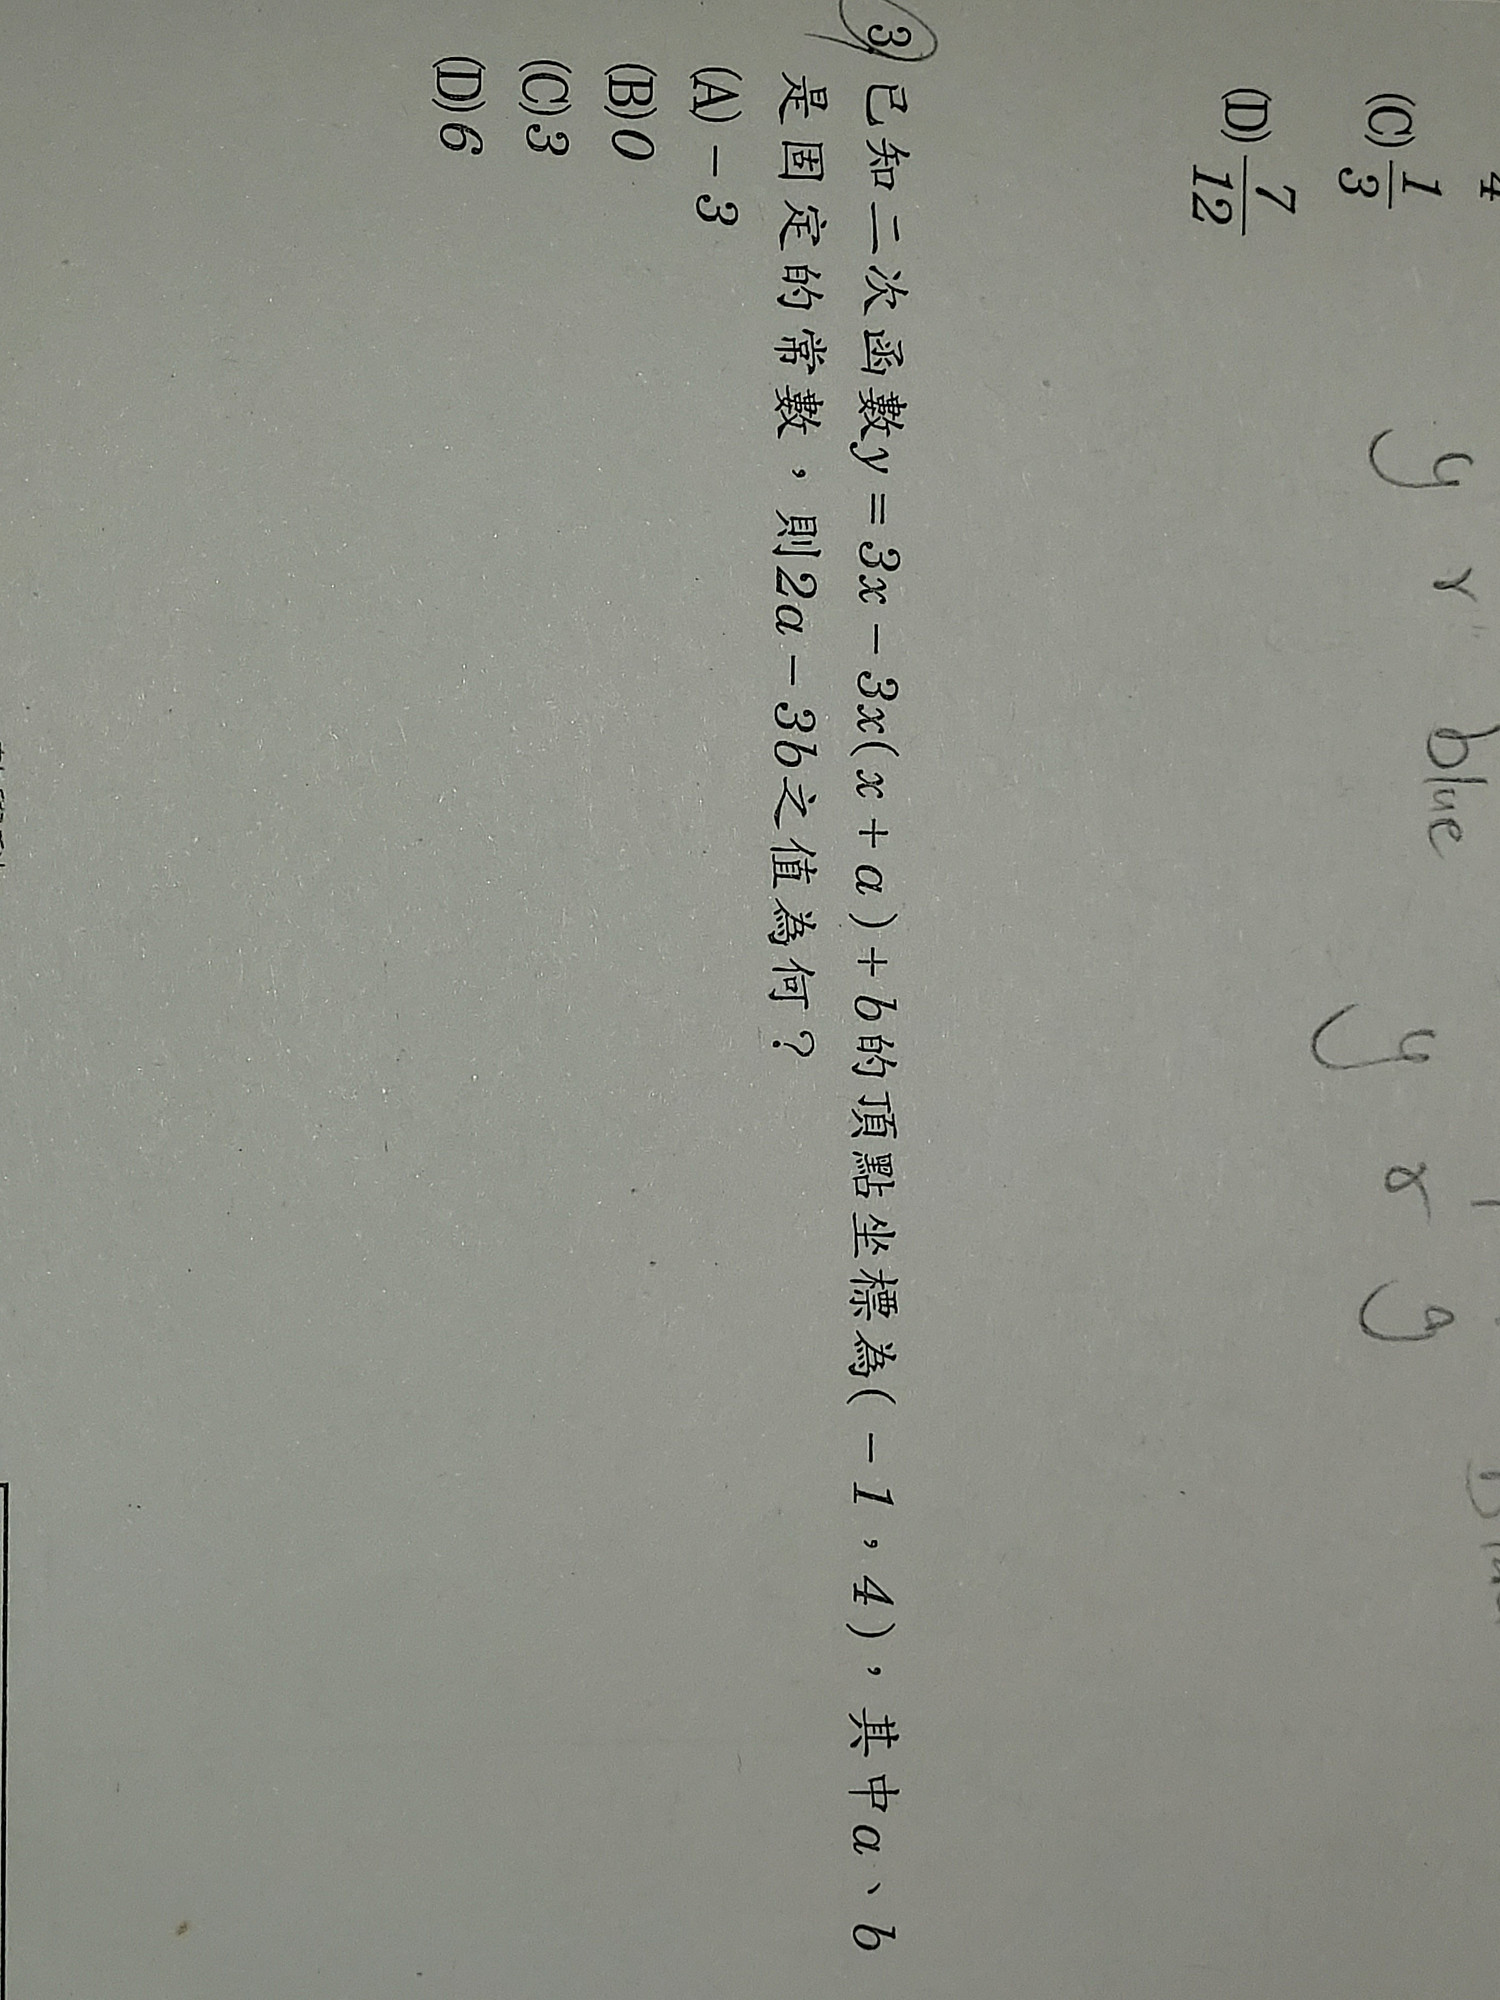 4
(C) 1/3
(D) 7/12
y r blue y r y
3 已知二次函數y=3x-3x(x+a)+b的頂點坐標為(-1,4),其中a、b
是固定的常數,則2a-3b之值為何?
(A)-3
(B)0
(C)3
(D)6